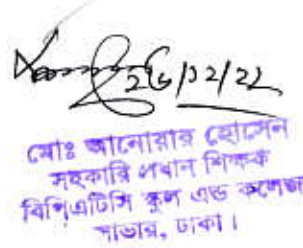 26/12/22
মোঃ আনোয়ার হোসেন
সহকারি প্রধান শিক্ষক
বিপিএটিসি স্কুল এন্ড কলেজ
সাভার, ঢাকা।